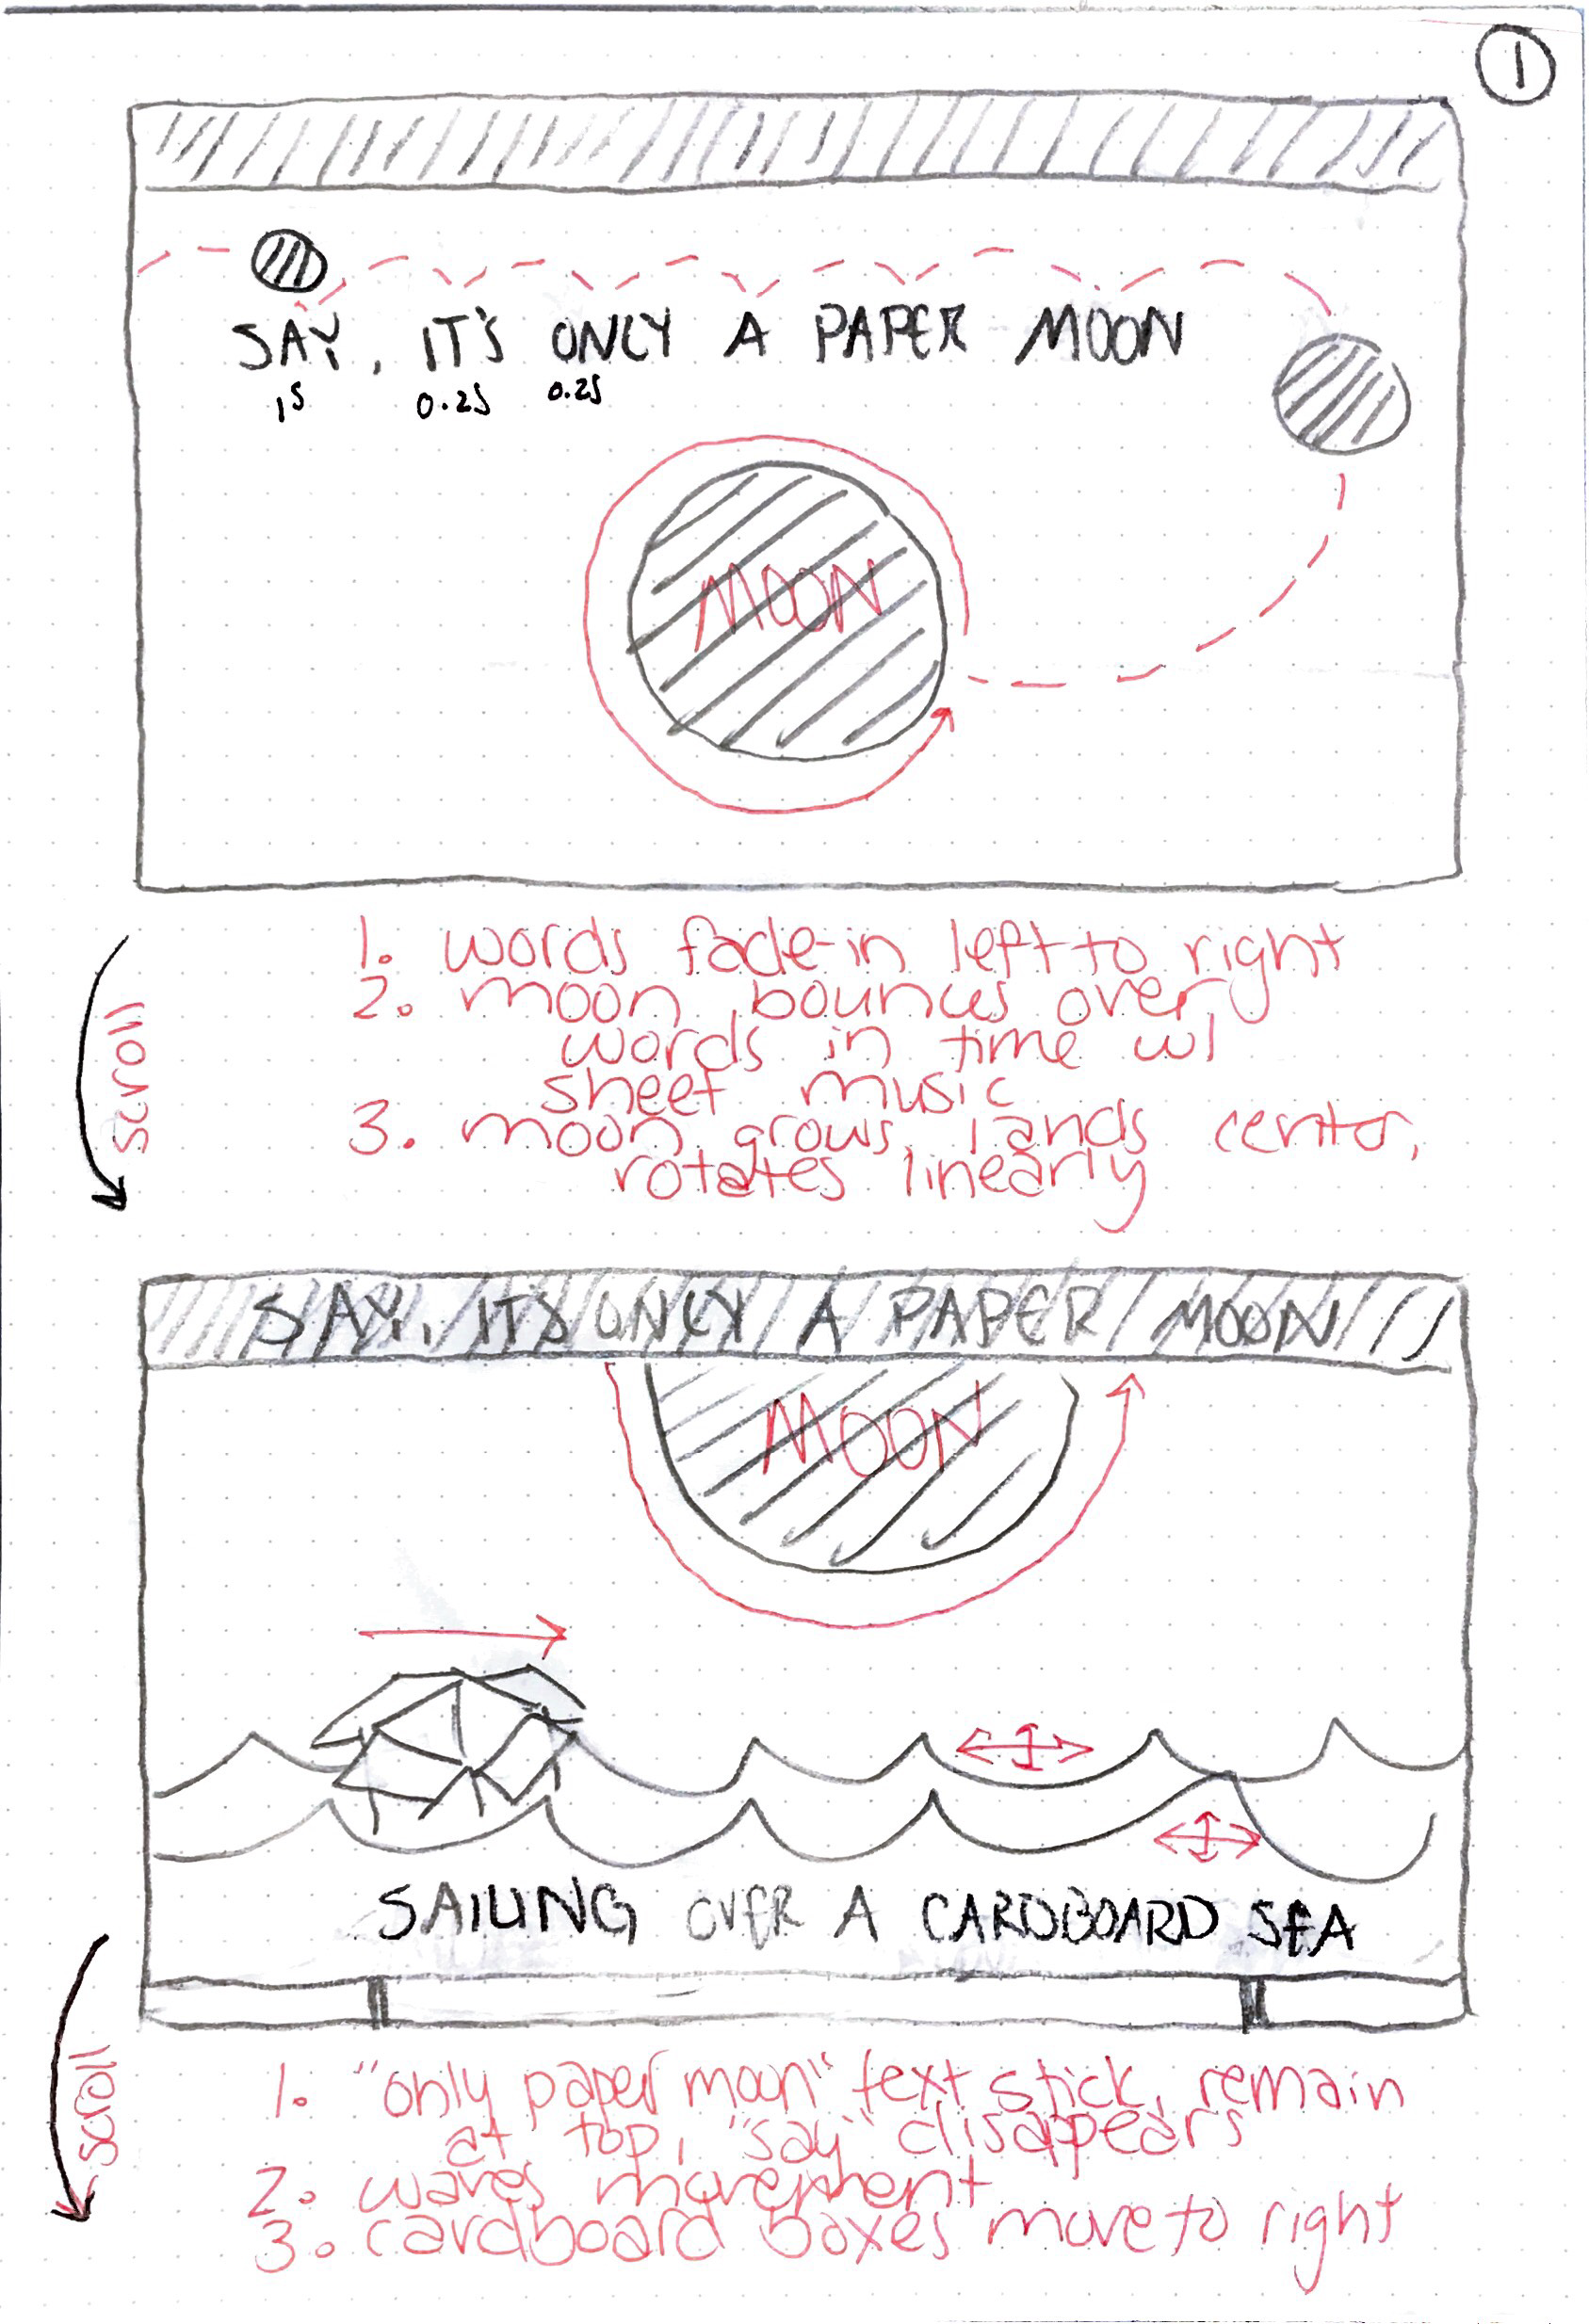 1
SAY, IT'S ONLY A PAPER MOON
1S 0.25 0.25
MOON
1. words fade-in left to right
2. moon bounces over
words in time w/
sheet music
3. moon grows, lands center,
rotates linearly
scroll
SAY, IT'S ONLY A PAPER MOON
MOON
SAILING OVER A CARDBOARD SEA
1. "only paper moon" text stick, remain
at top, "say" disappears
2. waves movement
3. cardboard boxes move to right
scroll